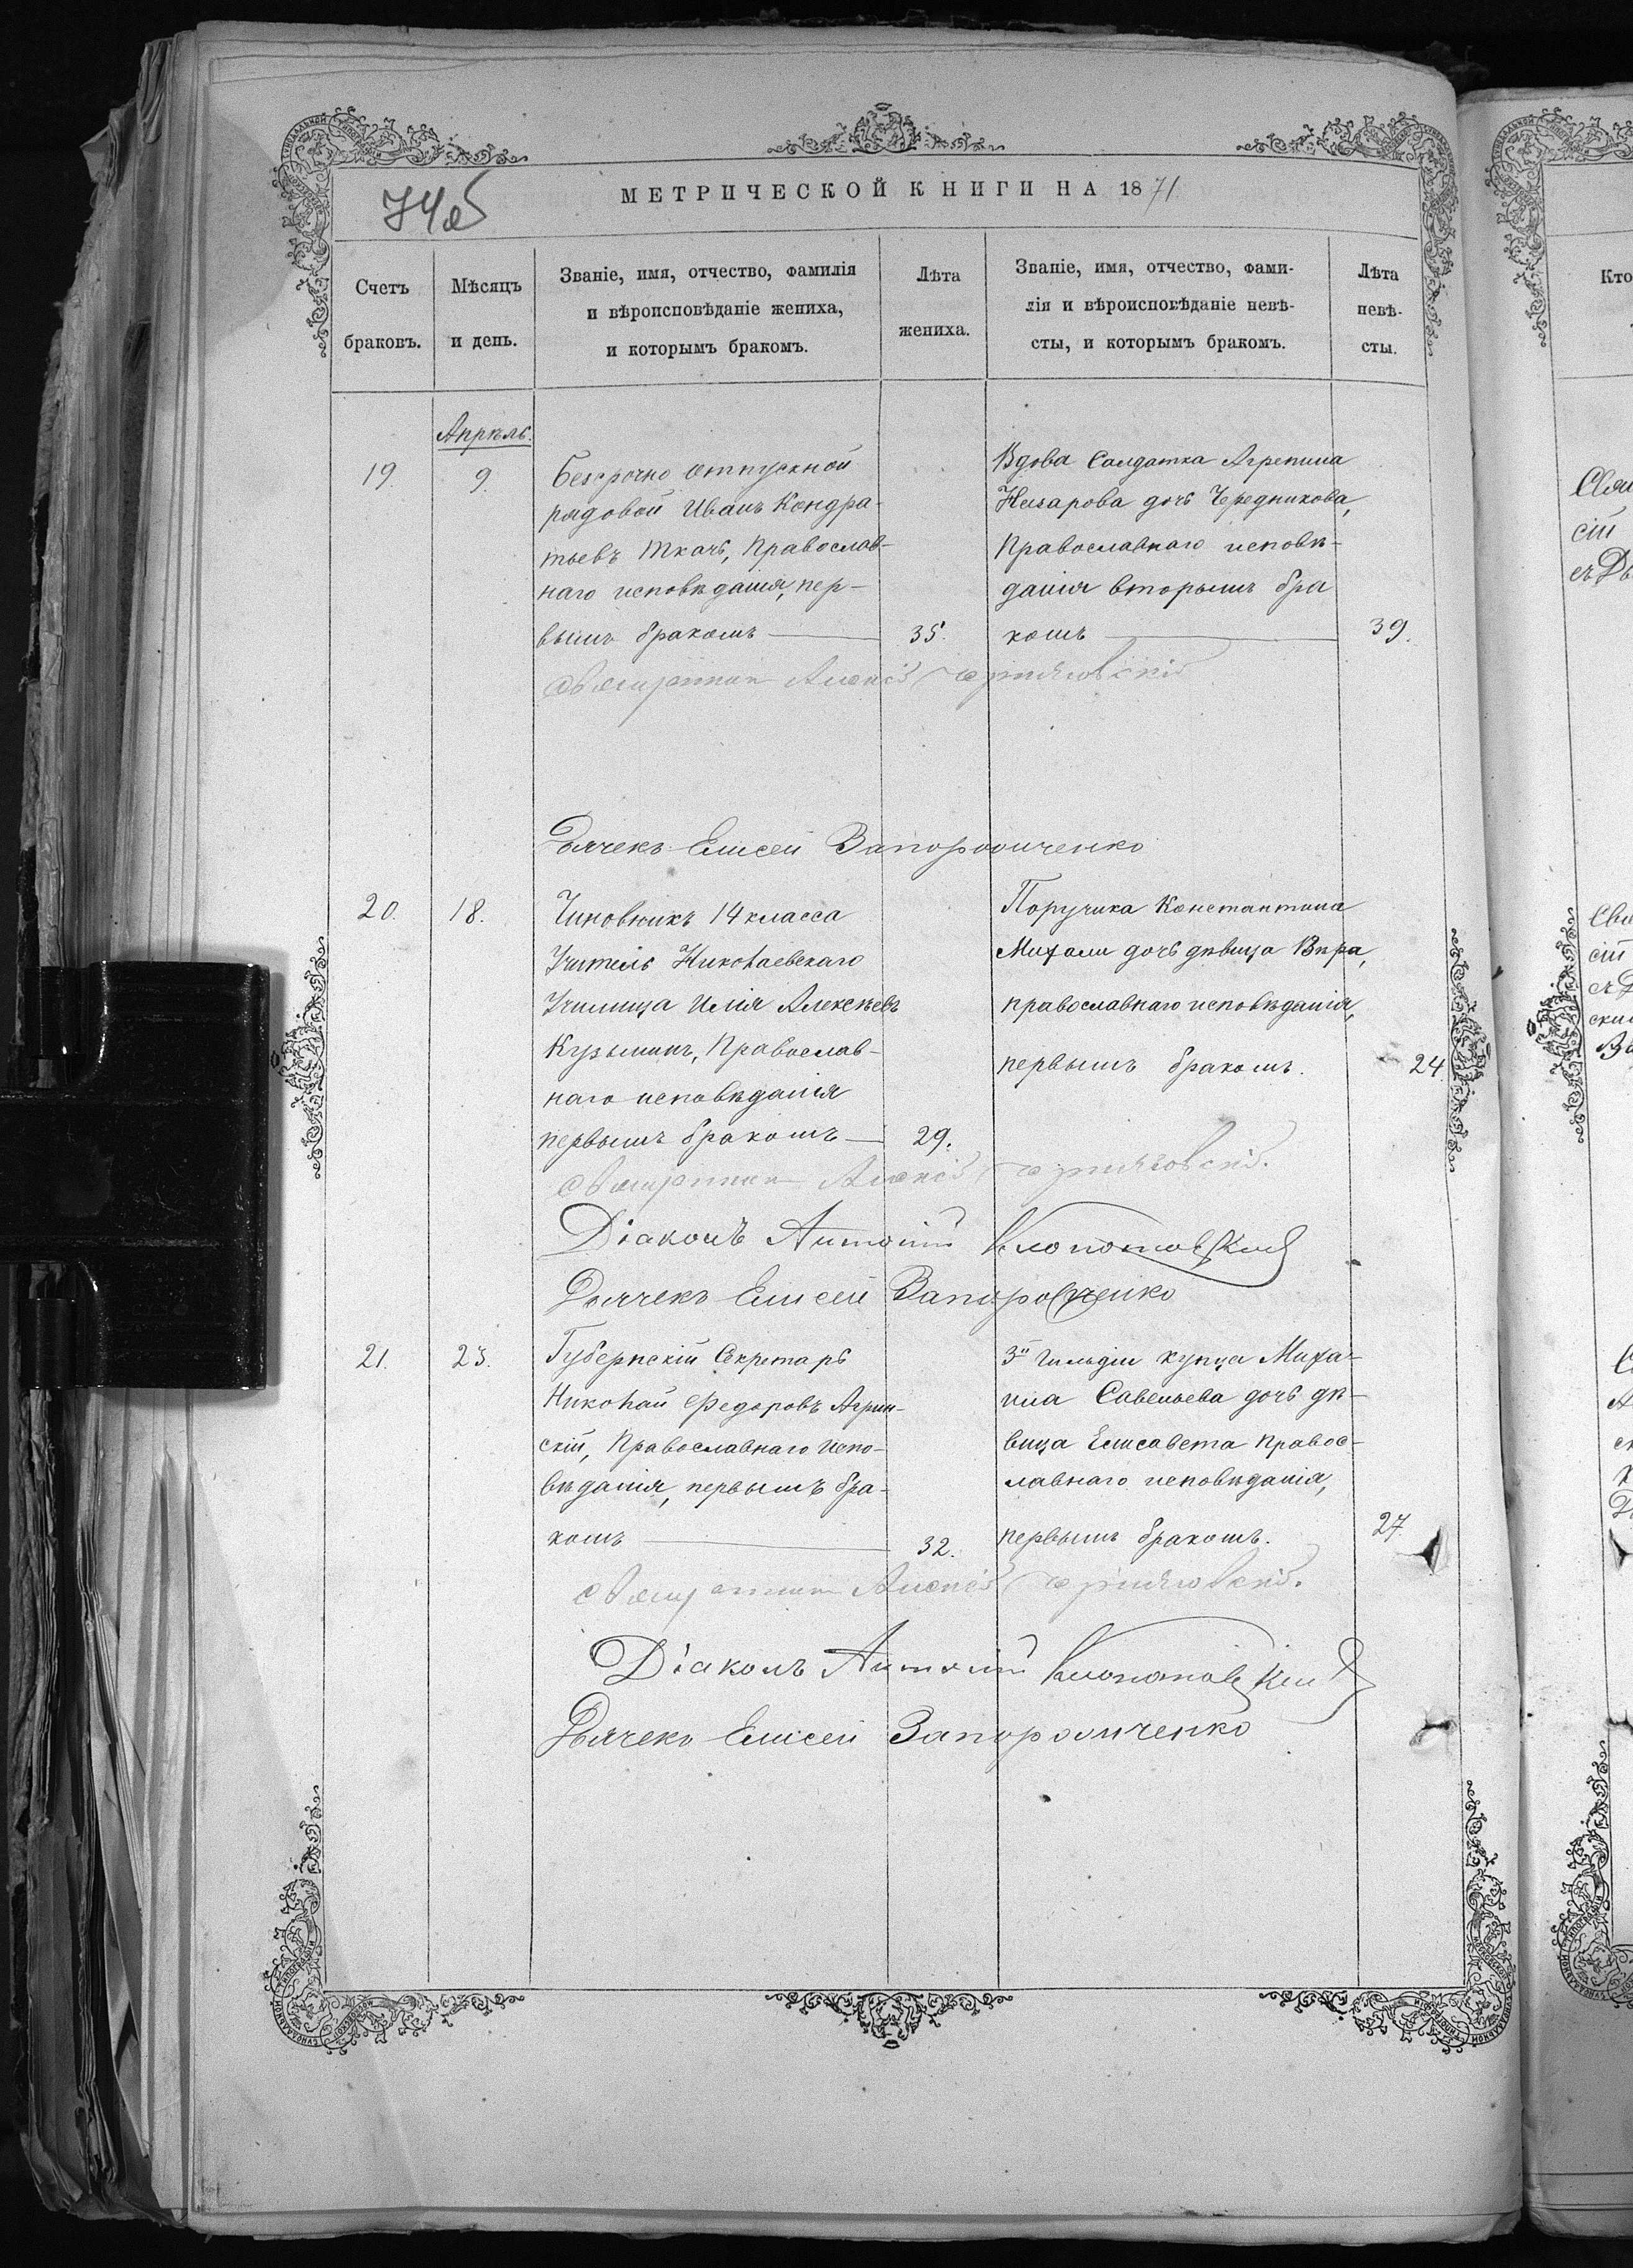 74об
МЕТРИЧЕСКОЙ КНИГИ НА 1871
Счетъ
браковъ.
Мѣсяцъ
и день.
Званіе, имя, отчество, фамилія
и вѣроисповѣданіе жениха,
и которымъ бракомъ.
Лѣта
жениха.
Званіе, имя, отчество, фами-
лія и вѣроисповѣданіе невѣ-
сты, и которымъ бракомъ.
Лѣта
невѣ-
сты.
Апрѣль.
19
9.
Безсрочно отпускной
рядовой Иванъ Кондра-
тьевъ Ткачъ, Православ-
наго исповѣданія, пер-
вымъ бракомъ
35.
Вдова Солдатка Агрепина
Назарова дочь Чередникова,
Православнаго исповѣ-
данія вторымъ бра
комъ
39.
Священник Алексій
Дьячекъ Елисей Запорожченко
20.
18.
Чиновникъ 14 класса
Учитель Николаевскаго
Училища Илія Алексѣевъ
Кузьминъ, Православ-
наго исповѣданія
первымъ бракомъ
29.
Поручика Константина
Михали дочь дѣвица Вѣра,
православнаго исповѣданія,
первымъ бракомъ.
24
Священник Алексій
Діаконъ Антоній Клопотовскій
Дьячекъ Елисей Запорожченко
21.
23.
Губернскій Секретарь
Николай Федоровъ Агрин-
скій, Православнаго испо-
вѣданія, первымъ бра-
комъ
32.
3й гильдіи купца Миха-
ила Савельева дочь дѣ-
вица Елисавета Правос-
лавнаго исповѣданія,
первымъ бракомъ.
27
Священник Алексій
Діаконъ Антоній Клопотовскій
Дьячекъ Елисей Запорожченко
Кто